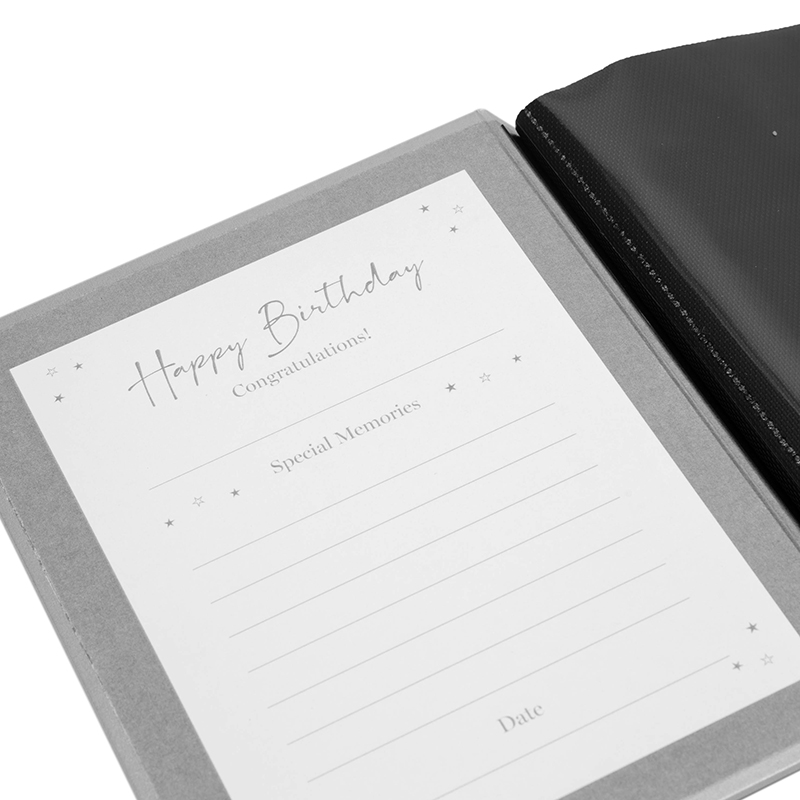 Happy Birthday
Congratulations!
Special Memories
Date